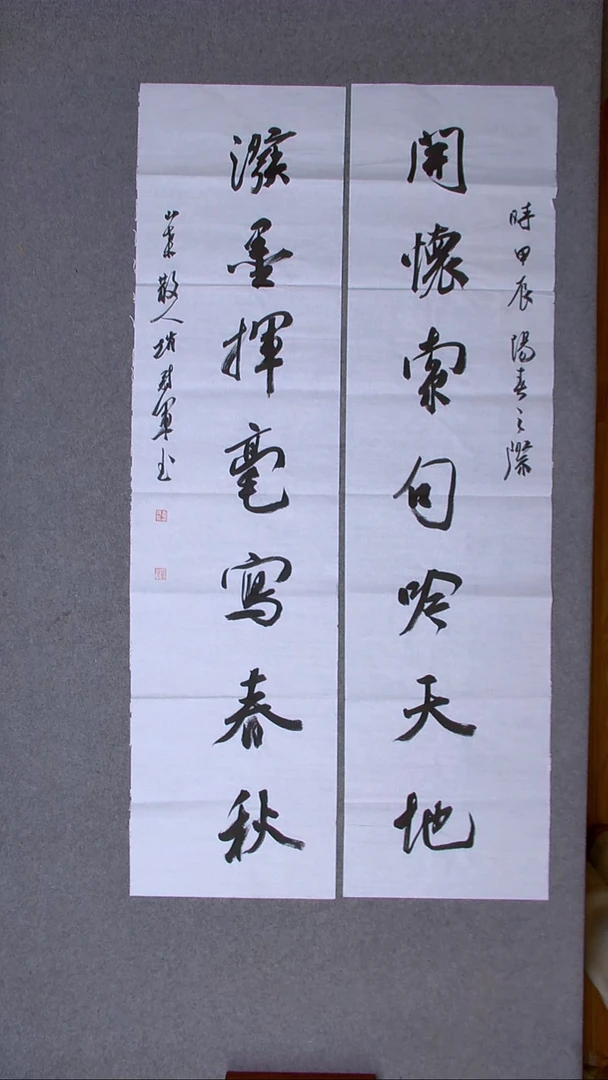 時甲辰陽春之際
開懷索句吟天地
潑墨揮毫寫春秋
散人 軍书